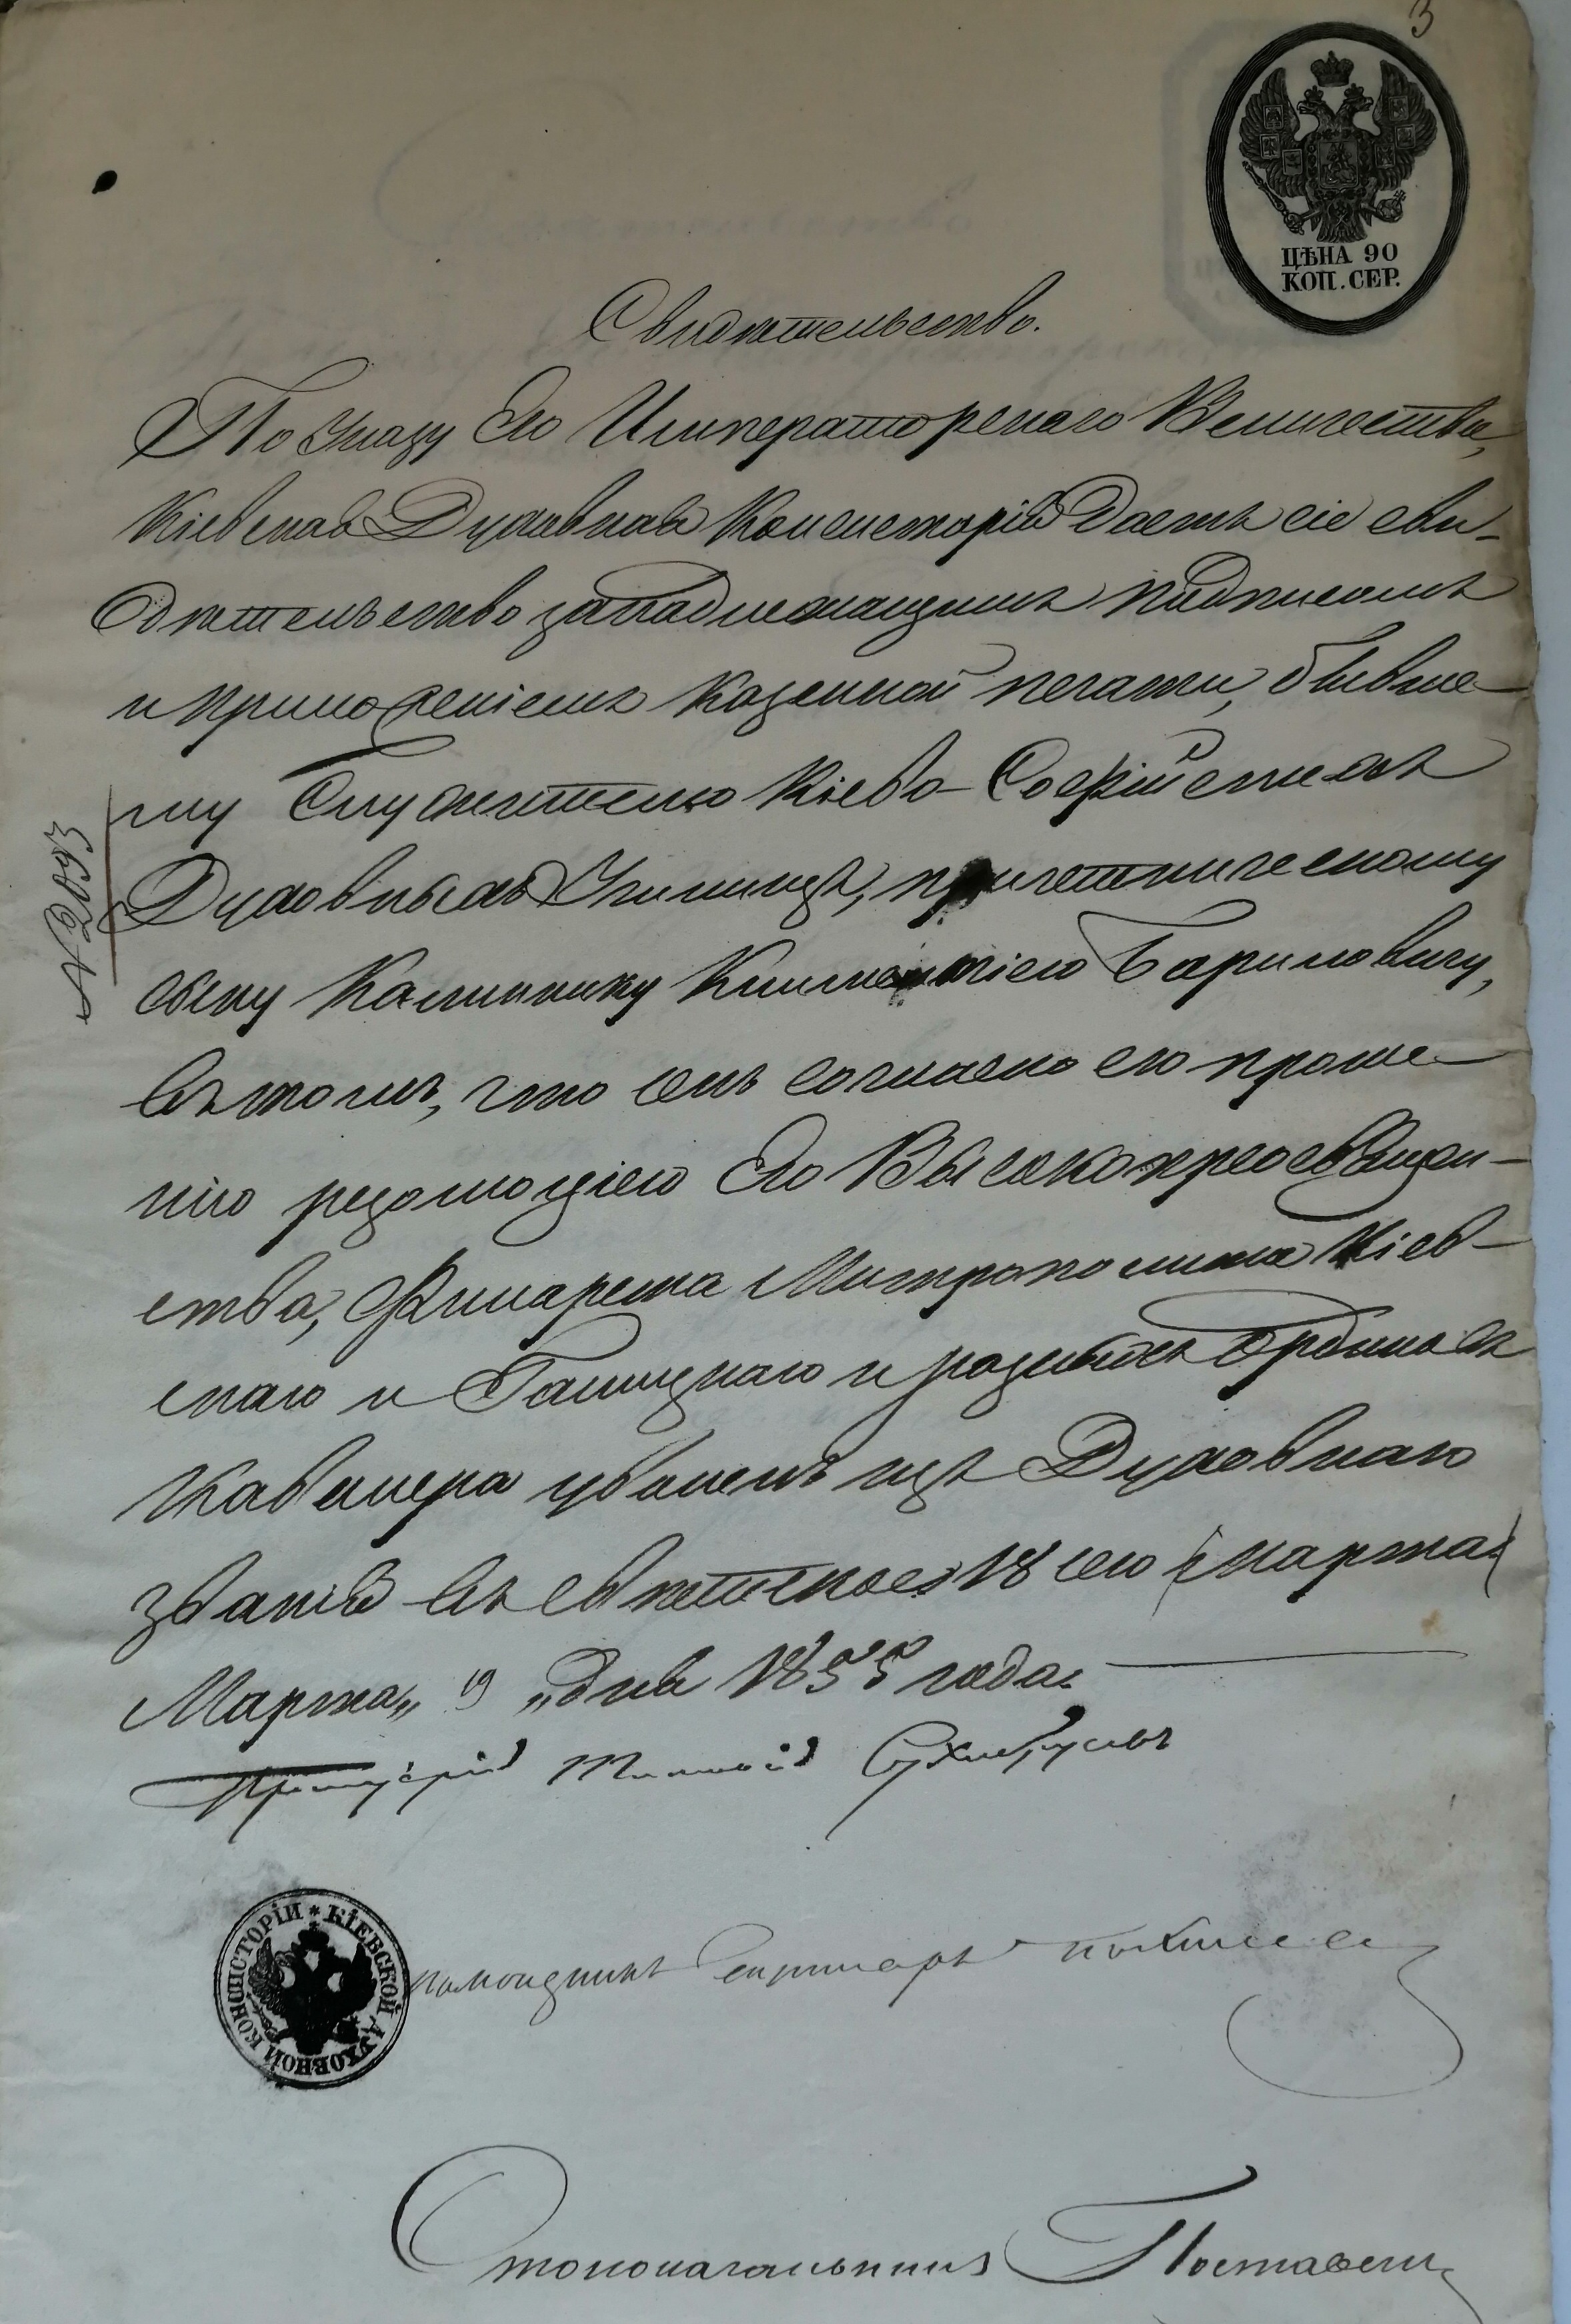 3
ЦѢНА 90
КОП. СЕР.
Свидѣтельство.
По Указу Его Императорскаго Величества,
Кіевская Духовная Консисторія даетъ сіе сви-
дѣтельство за надлежащимъ подписомъ
и приложеніемъ казенной печати, бывше-
му Служителю Кіево-Софійскихъ
Духовныхъ Училищъ, причетническому
сыну Калиннику Климентіею Бариловичу,
въ томъ, что онъ согласно его проше-
нію резолюціею Его Высокопреосвящен-
ства, Филарета Митрополита Кіев-
скаго и Галицкаго и разныхъ Орденовъ
Кавалера уволенъ изъ Духовнаго
званія въ свѣтское 18 сего (марта)
Марта „ 9 „ дня 1855 года.
№ 2093
Протоіерей
Помощникъ Секретаря
КІЕВСКОЙ ДУХОВНОЙ КОНСИСТОРІИ
Столоначальникъ